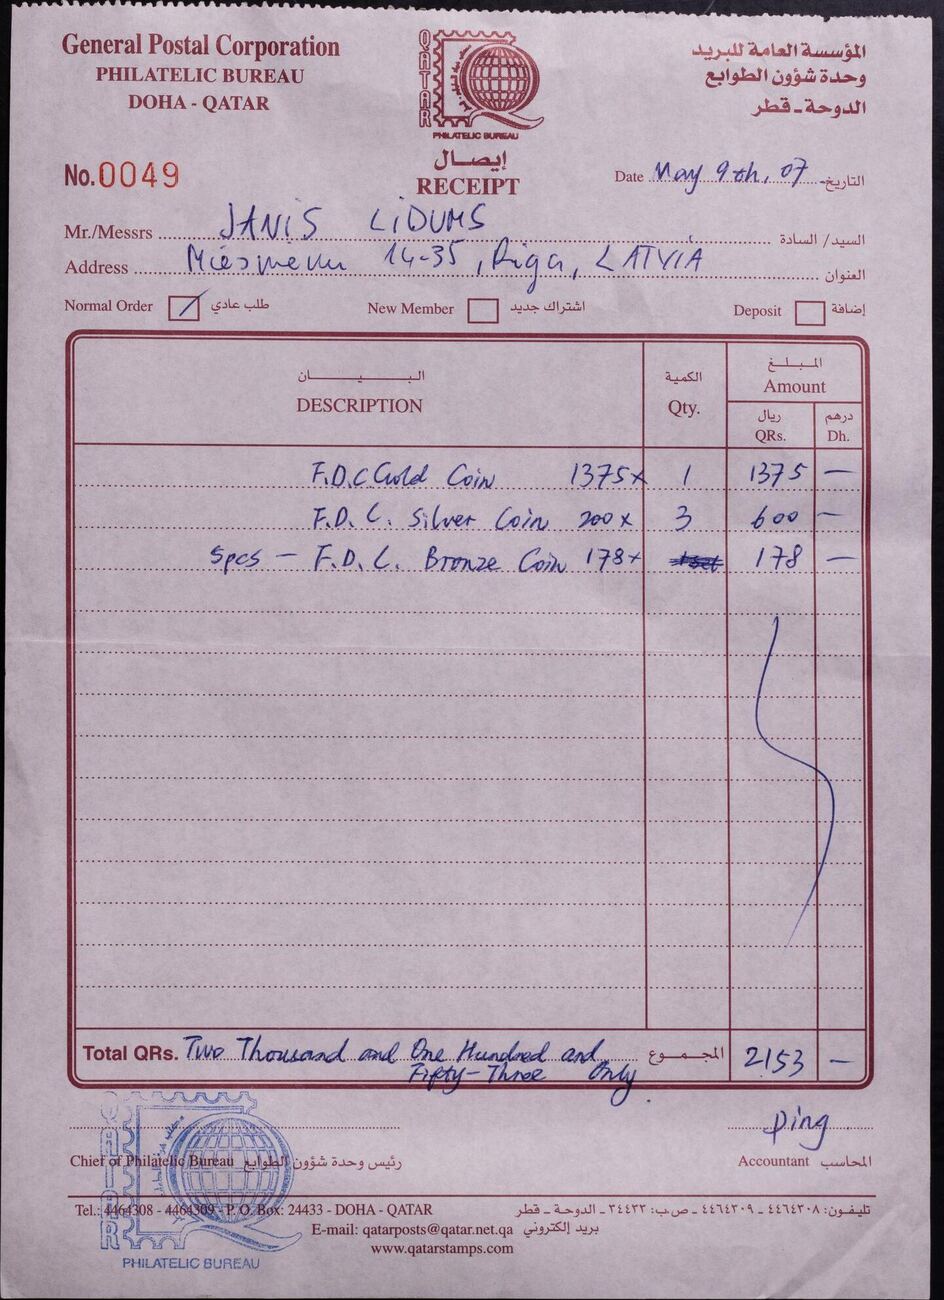 General Postal Corporation
PHILATELIC BUREAU
DOHA - QATAR
QATAR
PHILATELIC BUREAU
المؤسسة العامة للبريد
وحدة شؤون الطوابع
الدوحة ـ قطر
إيصال
RECEIPT
No. 0049
Date May 9th, 07 التاريخ
Mr./Messrs JANIS LIDUMS السيد/ السادة
Address 14-35, Riga, LATVIA العنوان
Normal Order طلب عادي New Member اشتراك جديد Deposit إضافة
البيان الكمية المبلغ
DESCRIPTION Qty. Amount
ريال درهم
QRs. Dh.
F.D.C Gold Coin 1375x 1 1375 —
F.D.C. Silver Coin 200x 3 600 —
5pcs — F.D.C. Bronze Coin 178x 178 —
Total QRs. Two Thousand and One Hundred and المجموع 2153 —
Fifty-Three Only
Ping
Chief of Philatelic Bureau رئيس وحدة شؤون الطوابع Accountant المحاسب
Tel.: 4464308 - 4464309 - P. O. Box: 24433 - DOHA - QATAR تليفون: ٤٤٦٤٣٠٨ ـ ٤٤٦٤٣٠٩ ـ ص.ب: ٢٤٤٣٣ ـ الدوحة ـ قطر
E-mail: qatarposts@qatar.net.qa بريد إلكتروني
www.qatarstamps.com
QATAR
PHILATELIC BUREAU